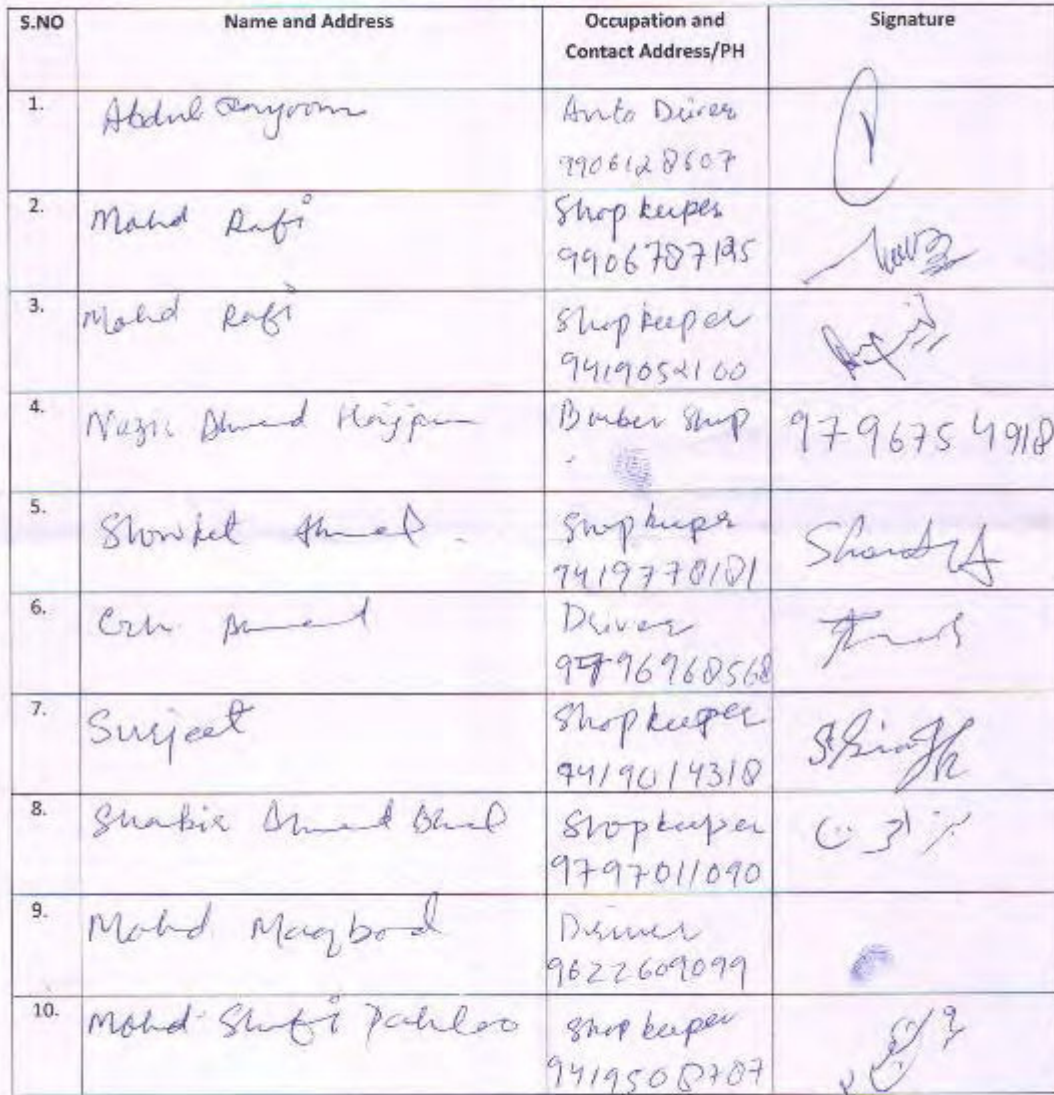 S.NO Name and Address Occupation and Contact Address/PH Signature
1. Abdul Qayoom Auto Driver
9906128607
2. Mohd Rafi Shop keeper
9906787195
3. Mohd Rafi Shop keeper
9419052100
4. Nazir Ahmad Barber Shop 9796754918
5. Showket Ahmad Shopkeeper
9419778181
6. Ahmad Driver
9796968568
7. Surjeet Shop keeper SSingh
9419014318
8. Shabir Ahmad Shopkeeper
9797011090
9. Mohd Maqbool Driver
9622609099
10. Mohd Shafi Pahloo Shop keeper
9419508787